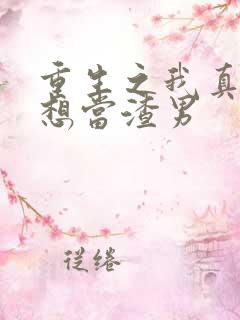 重生之我真
想當渣男
従绻